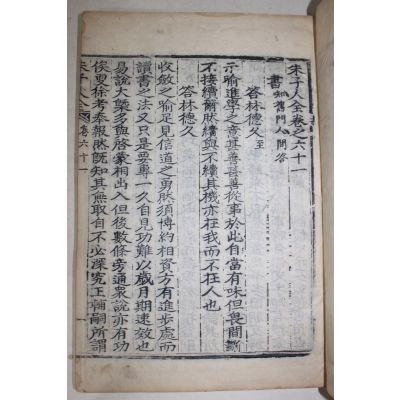 朱子大全卷之六十一
書知舊門人問答
答林德久至
示喻進學之意甚善甚善從事於此自當有味但畏間斷
不接續爾然續與不續其機亦在我而不在人也
答林德久
收斂之喻足見信道之勇然須博約相資方有進步處而
讀書之法又只是要專一久自見功難以歲月期速效也
易說大槩多與啓蒙相出入但後數條旁通衆說亦有功
俟更徐考奉報然旣知其無取自不必深究王輔嗣所謂
朱子大全卷六十一